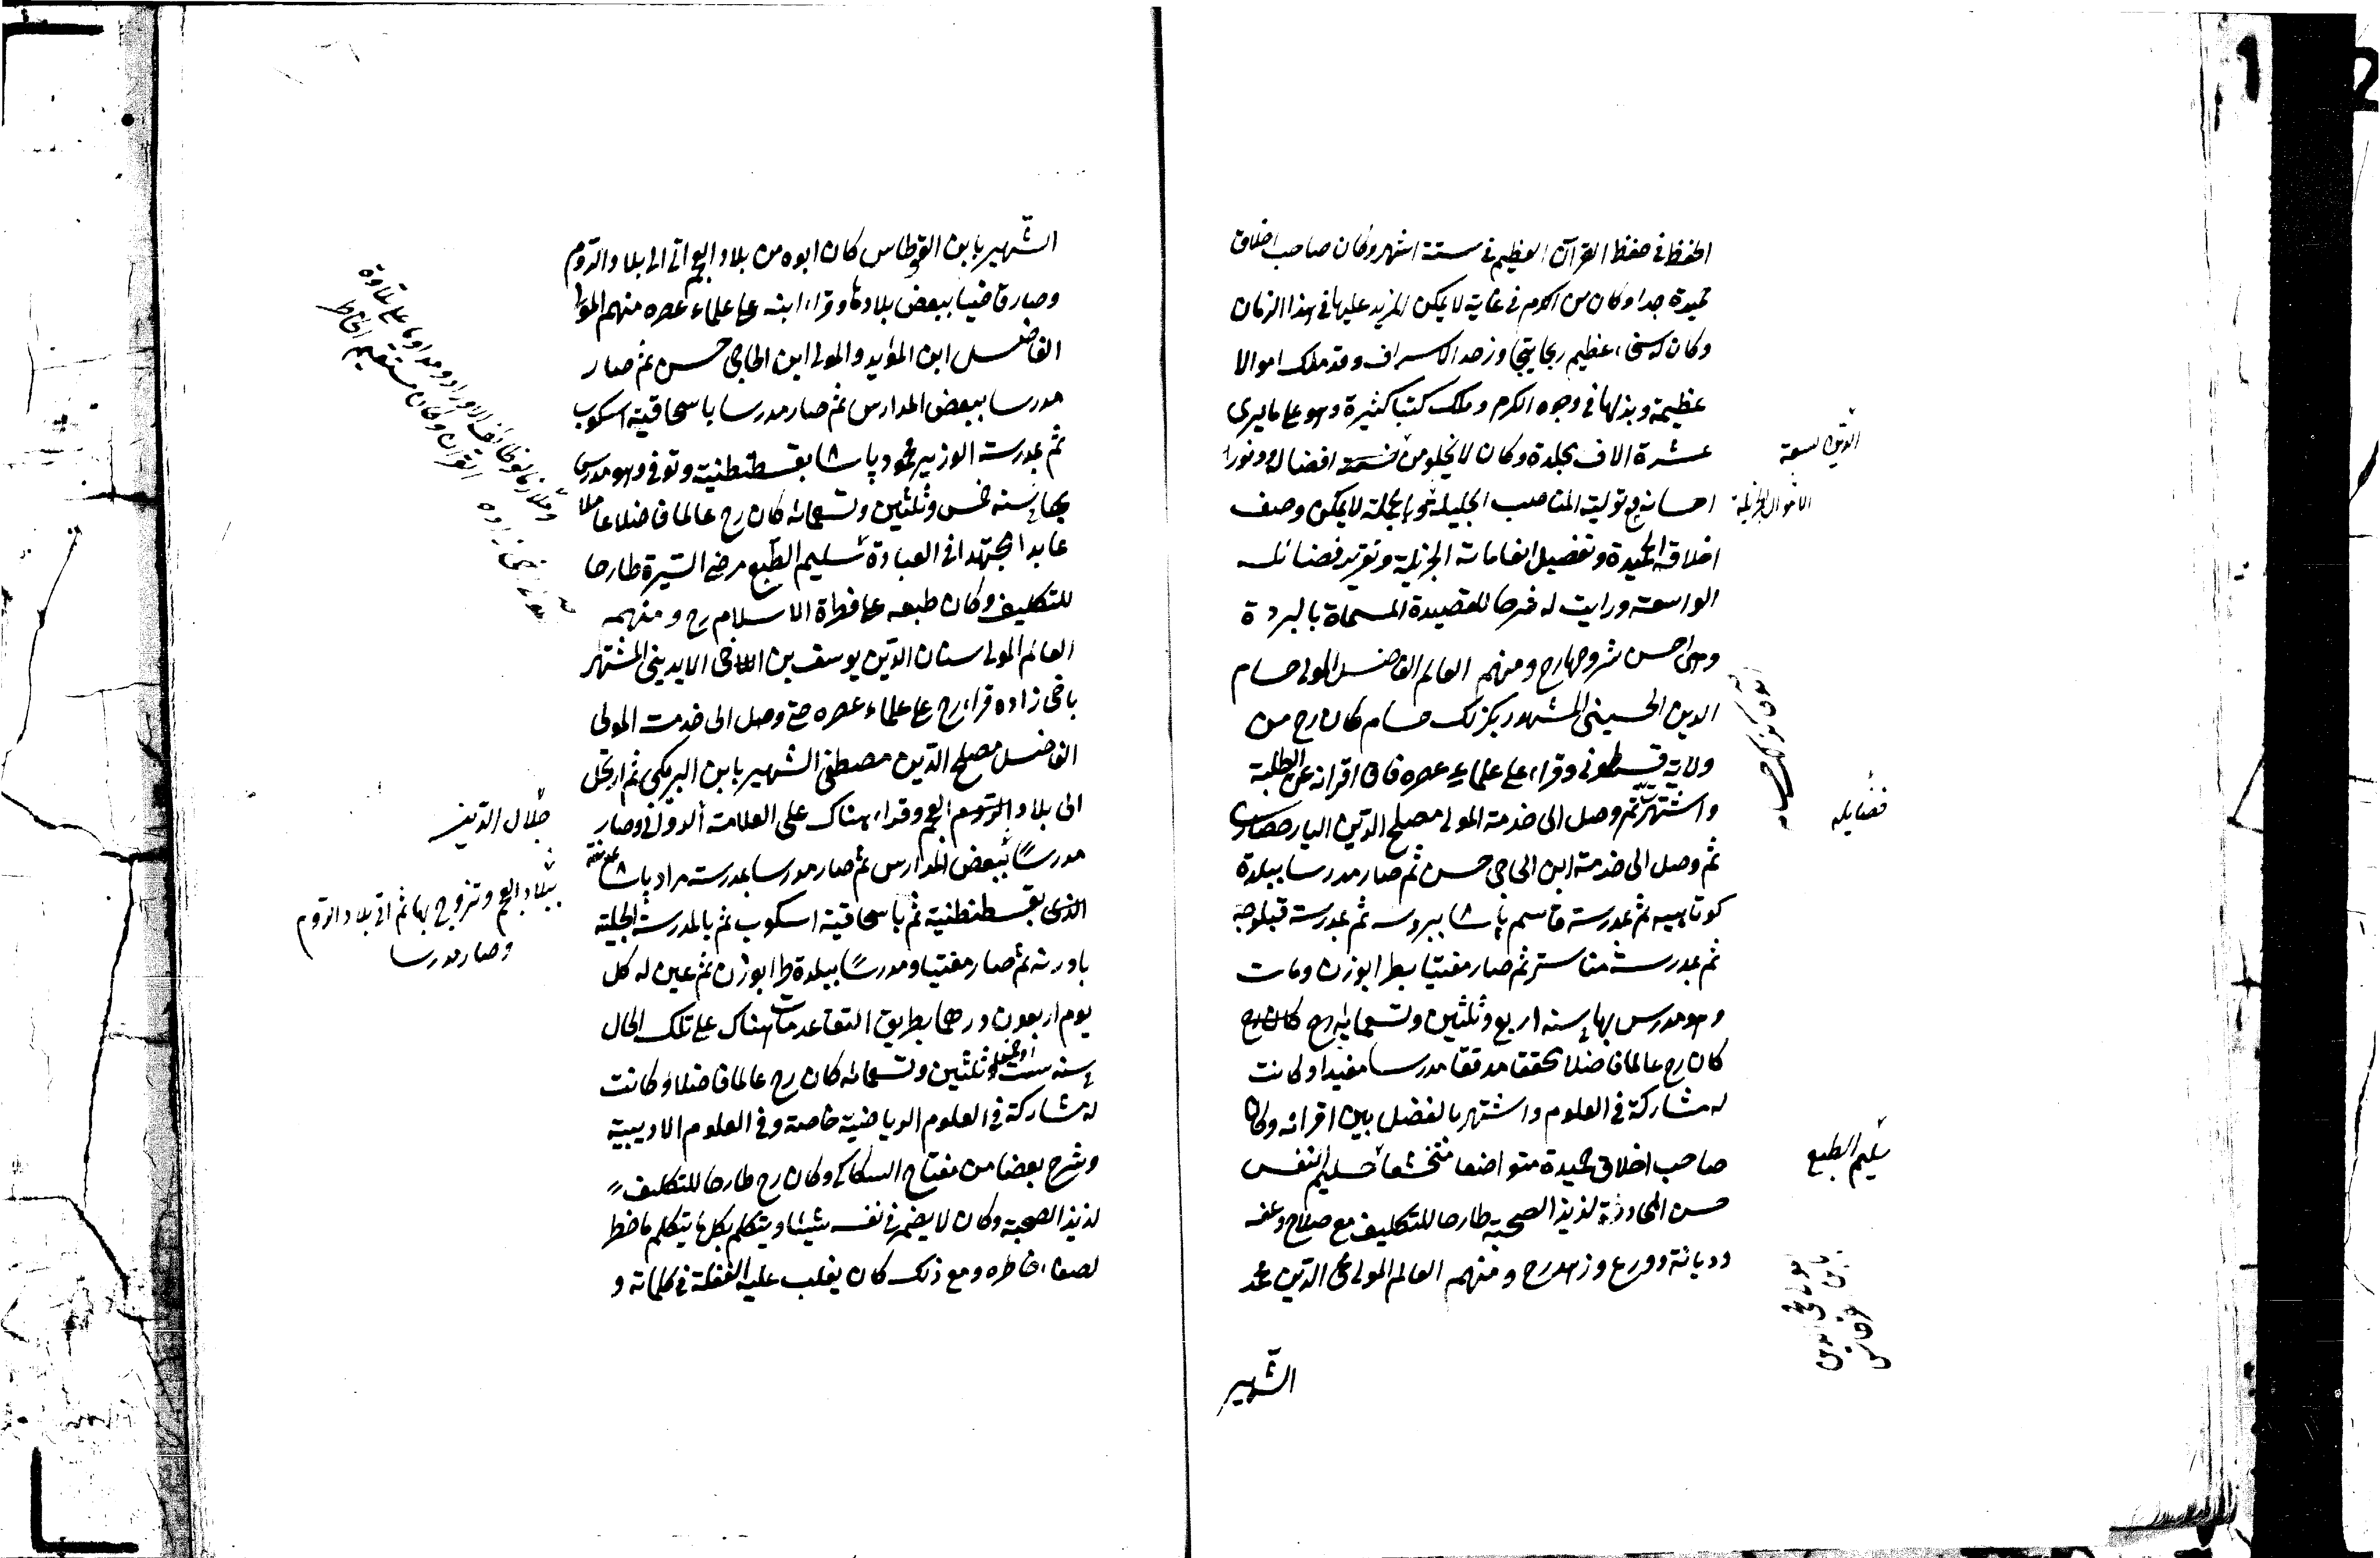 الحفظ فى حفظ القرآن العظيم فى ستة اشهر وكان صاحب اخلاق
حميدة جدا وكان من الكرم فى غاية لا يمكن المزيد عليها فى هذا الزمان
وكان له سخاء عظيم ربما يتجاوز حد الاسراف وقد ملك اموالا
عظيمة وبذلها فى وجوه الكرم وملك كتبا كثيرة وهو على ما يروى
عشرة الاف مجلدة وكان لا يخلو من افضاله ووفور
احسانه تولية المناصب الجليلة وبالجملة لا يمكن وصف
اخلاقه الحميدة وتفصيل انعاماته الجزيلة وتقرير فضائله
الواسعة ورايت له شرحا للقصيدة المسماة بالبردة
وهى احسن شروحها رح ومنهم العالم الفاضل المولى حسام
الدين الحسينى المشهور بكزلك حسام كان رح من
ولاية قسطمونى وقراء على علماء عصره فاق اقرانه عن الطلبة
واشتهرت ثم وصل الى خدمة المولى مصلح الدين اليارحصارى
ثم وصل الى خدمة ابن الحاجى حسن ثم صار مدرسا ببلدة
كوتاهيه ثم بمدرسة قاسم پاشا ببروسه ثم بمدرسة قبلوجه
ثم بمدرسة مناستر ثم صار مفتيا بطرابوزن ومات
وهو مدرس بها فى سنة اربع وثلثين وتسعمايه رح كان رح
كان رح عالما فاضلا محققا مدققا مدرسا مفيدا وكانت
له مشاركة فى العلوم واشتهر بالفضل بين اقرانه وكان
صاحب اخلاق حميدة متواضعا متخشعا حليم النفس
حسن المحاورة لذيذ الصحبة طارحا للتكليف مع صلاح وعفة
وديانة وورع وزهد رح ومنهم العالم المولى محى الدين محمد
الشهير
الدين لسعة
الاموال الجزيلة
المولى كزلك حسام
فضايله
سليم الطبع
مولا محى الدين
بابن قرطاس
الشهير بابن القرطاس كان ابوه من بلاد العجم اتى الى بلاد الروم
وصار قاضيا ببعض بلادها وقراء ابنه على علماء عصره منهم المولى
الفاضل ابن المؤيد والمولى ابن الحاجى حسن ثم صار
مدرسا ببعض المدارس ثم صار مدرسا باسحاقية اسكوب
ثم بمدرسة الوزير محمود پاشا بقسطنطنية وتوفى وهو مدرس
بها فى سنة خمس وثلثين وتسعمائه كان رح عالما فاضلا عاملا
عابدا مجتهدا فى العبادة سليم الطبع مرضى السيرة طارحا
للتكليف وكان طبعه على فطرة الاسلام رح ومنهم
العالم المولى سنان الدين يوسف بن اخى الايدينى المشتهر
باخى زاده قراء رح على علماء عصره حتى وصل الى خدمت المولى
الفاضل مصلح الدين مصطفى الشهير بابن البرمكى ثم ارتحل
الى بلاد العجم وقراء هناك على العلامة الدوانى وصار
مدرسا ببعض المدارس ثم صار مدرسا بمدرسة مراد پاشا
الذى بقسطنطنية ثم باسحاقية اسكوب ثم بالمدرسة الحلبية
بادرنه ثم صار مفتيا ومدرسا ببلدة طرابوزن ثم عين له كل
يوم اربعون درهما بطريق التقاعد مات هناك على تلك الحال
فى سنة ست او خمس وثلثين وتسعمائه كان رح عالما فاضلا وكانت
له مشاركة فى العلوم الرياضية خاصة وفى العلوم الادبيية
وشرح بعضا من مفتاح السكاكى وكان رح طارحا للتكليف
لذيذ الصحبة وكان لا يضمر فى نفسه شيئا ويتكلم بكل ما يتكلم ما خطر
لصفاء خاطره ومع ذلك كان يغلب عليه الغفلة فى كلماته و
وملازما لوظائف الاوراد ومداوما على تلاوة
القرآن وكان مستقيم الخاطر
جلال الدين
ببلاد العجم وتزوج بها ثم اتى بلاد الروم
وصار مدرسا